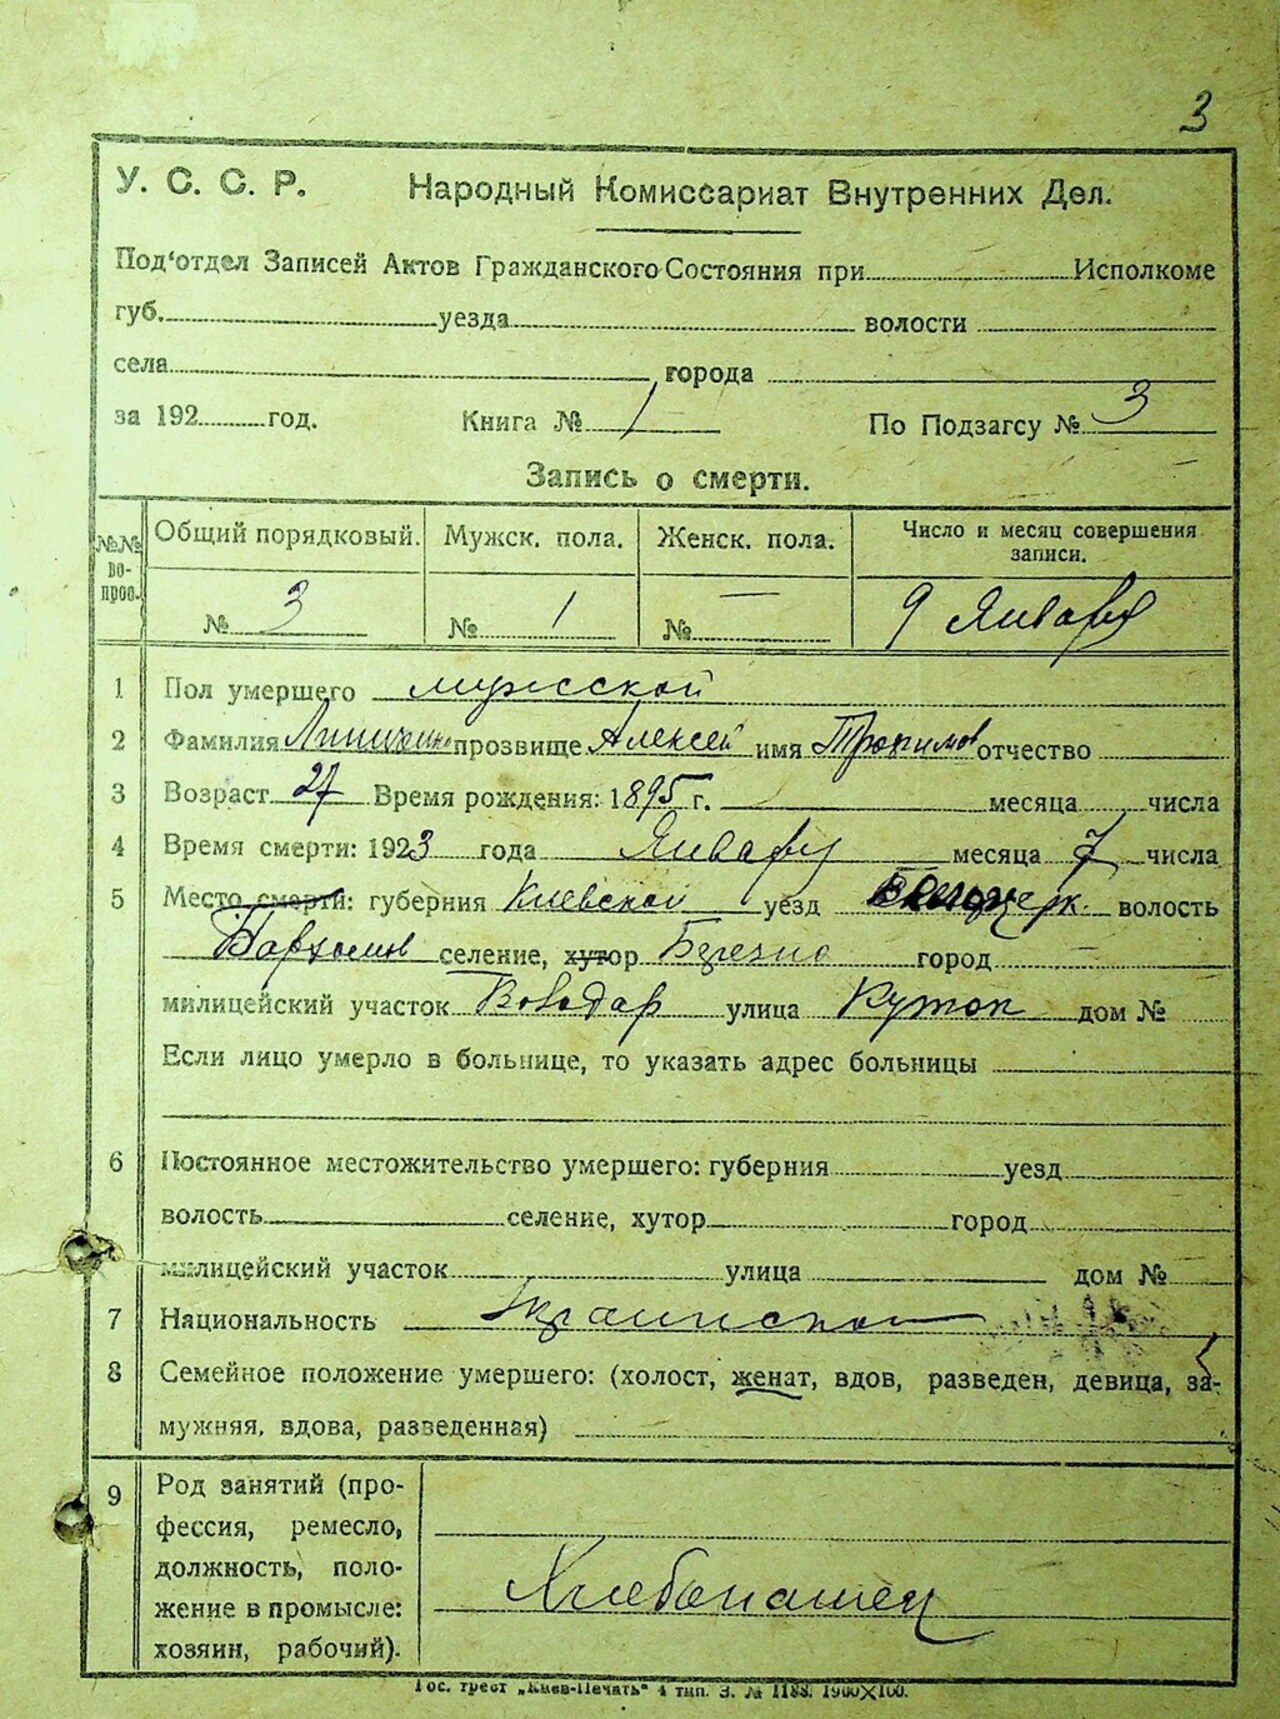 3
У. С. С. Р. Народный Комиссариат Внутренних Дел.
Под'отдел Записей Актов Гражданского Состояния при Исполкоме
губ. уезда волости
села города
за 192 год. Книга № 1 По Подзагсу № 3
Запись о смерти.
№№ вопрос. Общий порядковый. Мужск. пола. Женск. пола. Число и месяц совершения записи.
№ 3 № 1 № — 9 Января
1 Пол умершего мужской
2 Фамилия прозвище Алексей имя Трофимов отчество
3 Возраст 27 Время рождения: 1895 г. месяца числа
4 Время смерти: 1923 года Января месяца 7 числа
5 Место смерти: губерния Киевской уезд волость
селение, хутор Березно город —
милицейский участок Володар улица Куток дом №
Если лицо умерло в больнице, то указать адрес больницы
6 Постоянное местожительство умершего: губерния уезд
волость селение, хутор город
милицейский участок улица дом №
7 Национальность
8 Семейное положение умершего: (холост, женат, вдов, разведен, девица, за-
мужняя, вдова, разведенная)
9 Род занятий (про-
фессия, ремесло,
должность, поло-
жение в промысле:
хозяин, рабочий).
Хлебопашец
Гос. трест „Киев-Печать" 4 тип. З. № 1188. 1900×100.